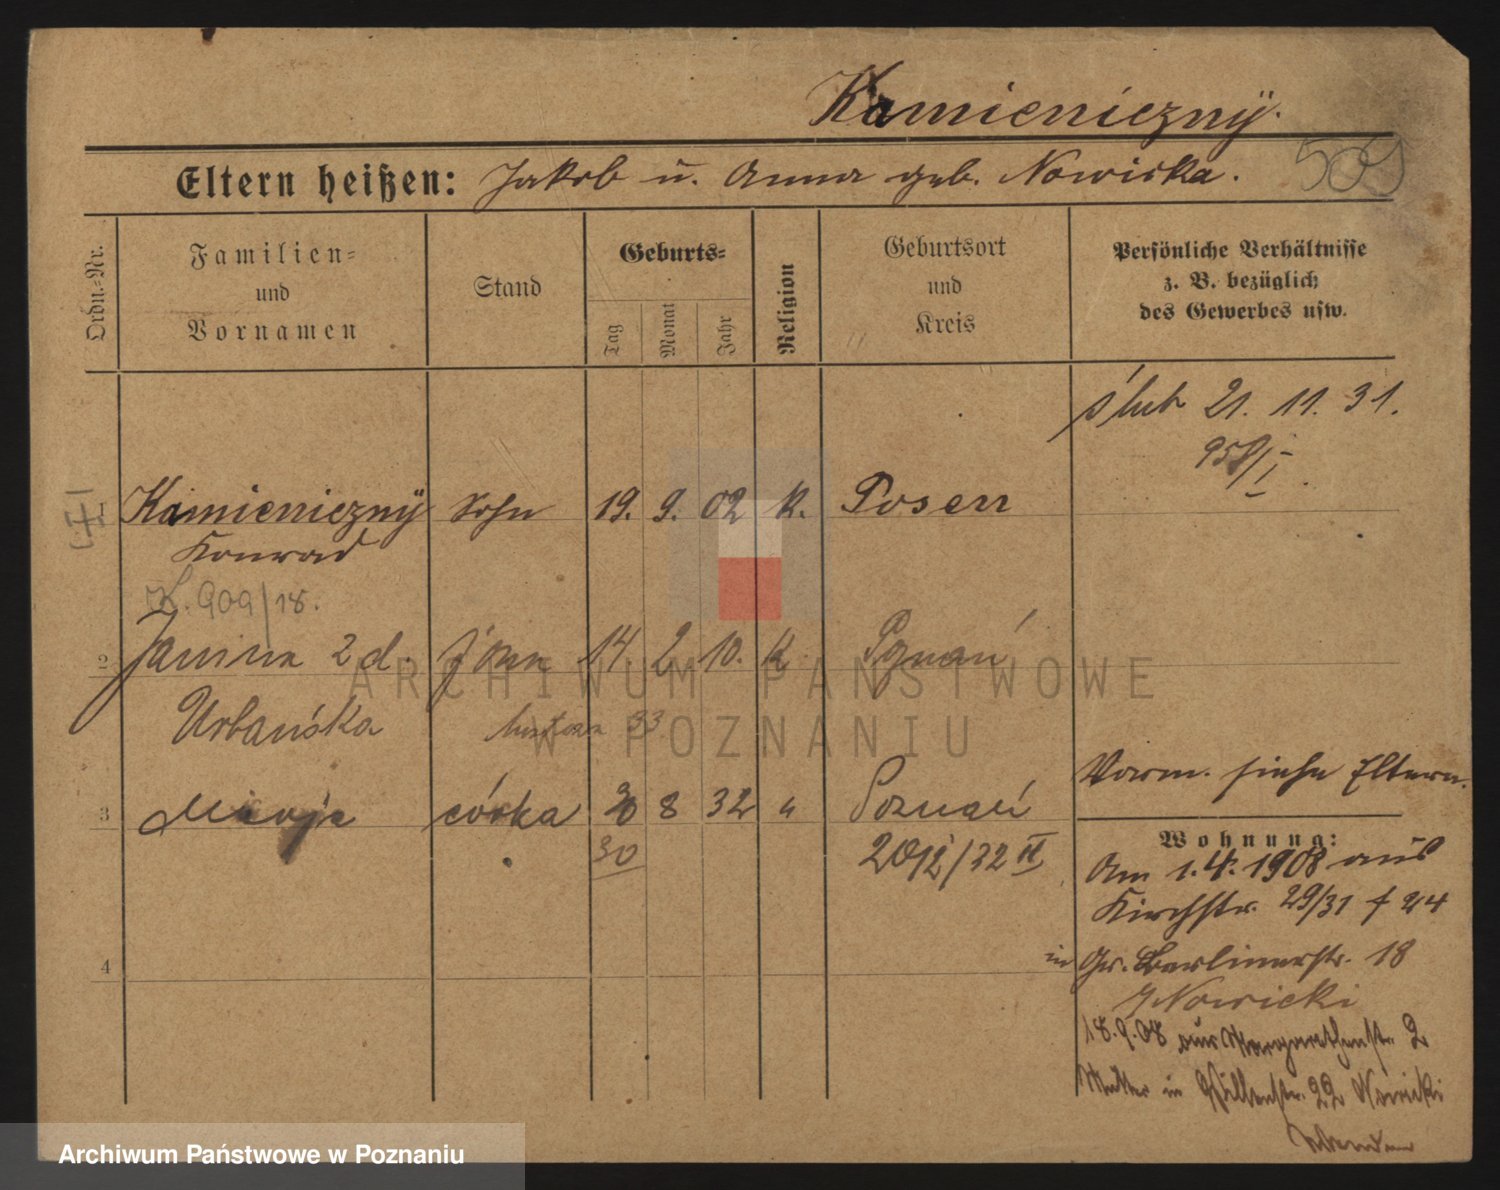 Kamieniezny.
Eltern heißen: Jakob u. Anna geb. Nowicka.
509
Ordn.-Nr.
Familien-
und
Vornamen
Stand
Geburts-
Tag
Monat
Jahr
Religion
Geburtsort
und
Kreis
Persönliche Verhältnisse
z. B. bezüglich
des Gewerbes usw.
ślub 21. 11. 31.
958/I.
1 Kamieniezny Sohn 19. 9. 02 k. Posen
Konrad
K. 909/18.
2 Janina 2 d. żona 14 2 10. k Poznań
Urbańska
33
Vorm. siehe Eltern.
3 Maryja córka 30 8 32 " Poznań
30
2012/32 II
Wohnung:
Am 1.4.1908 aus
Kirchstr. 29/31 f 24
4
in Gr. Berlinerstr. 18
Nowicki
18.9.08 aus Margarethenstr. 2
Mutter in 22 Nowicki
ARCHIWUM PAŃSTWOWE
W POZNANIU
Archiwum Państwowe w Poznaniu